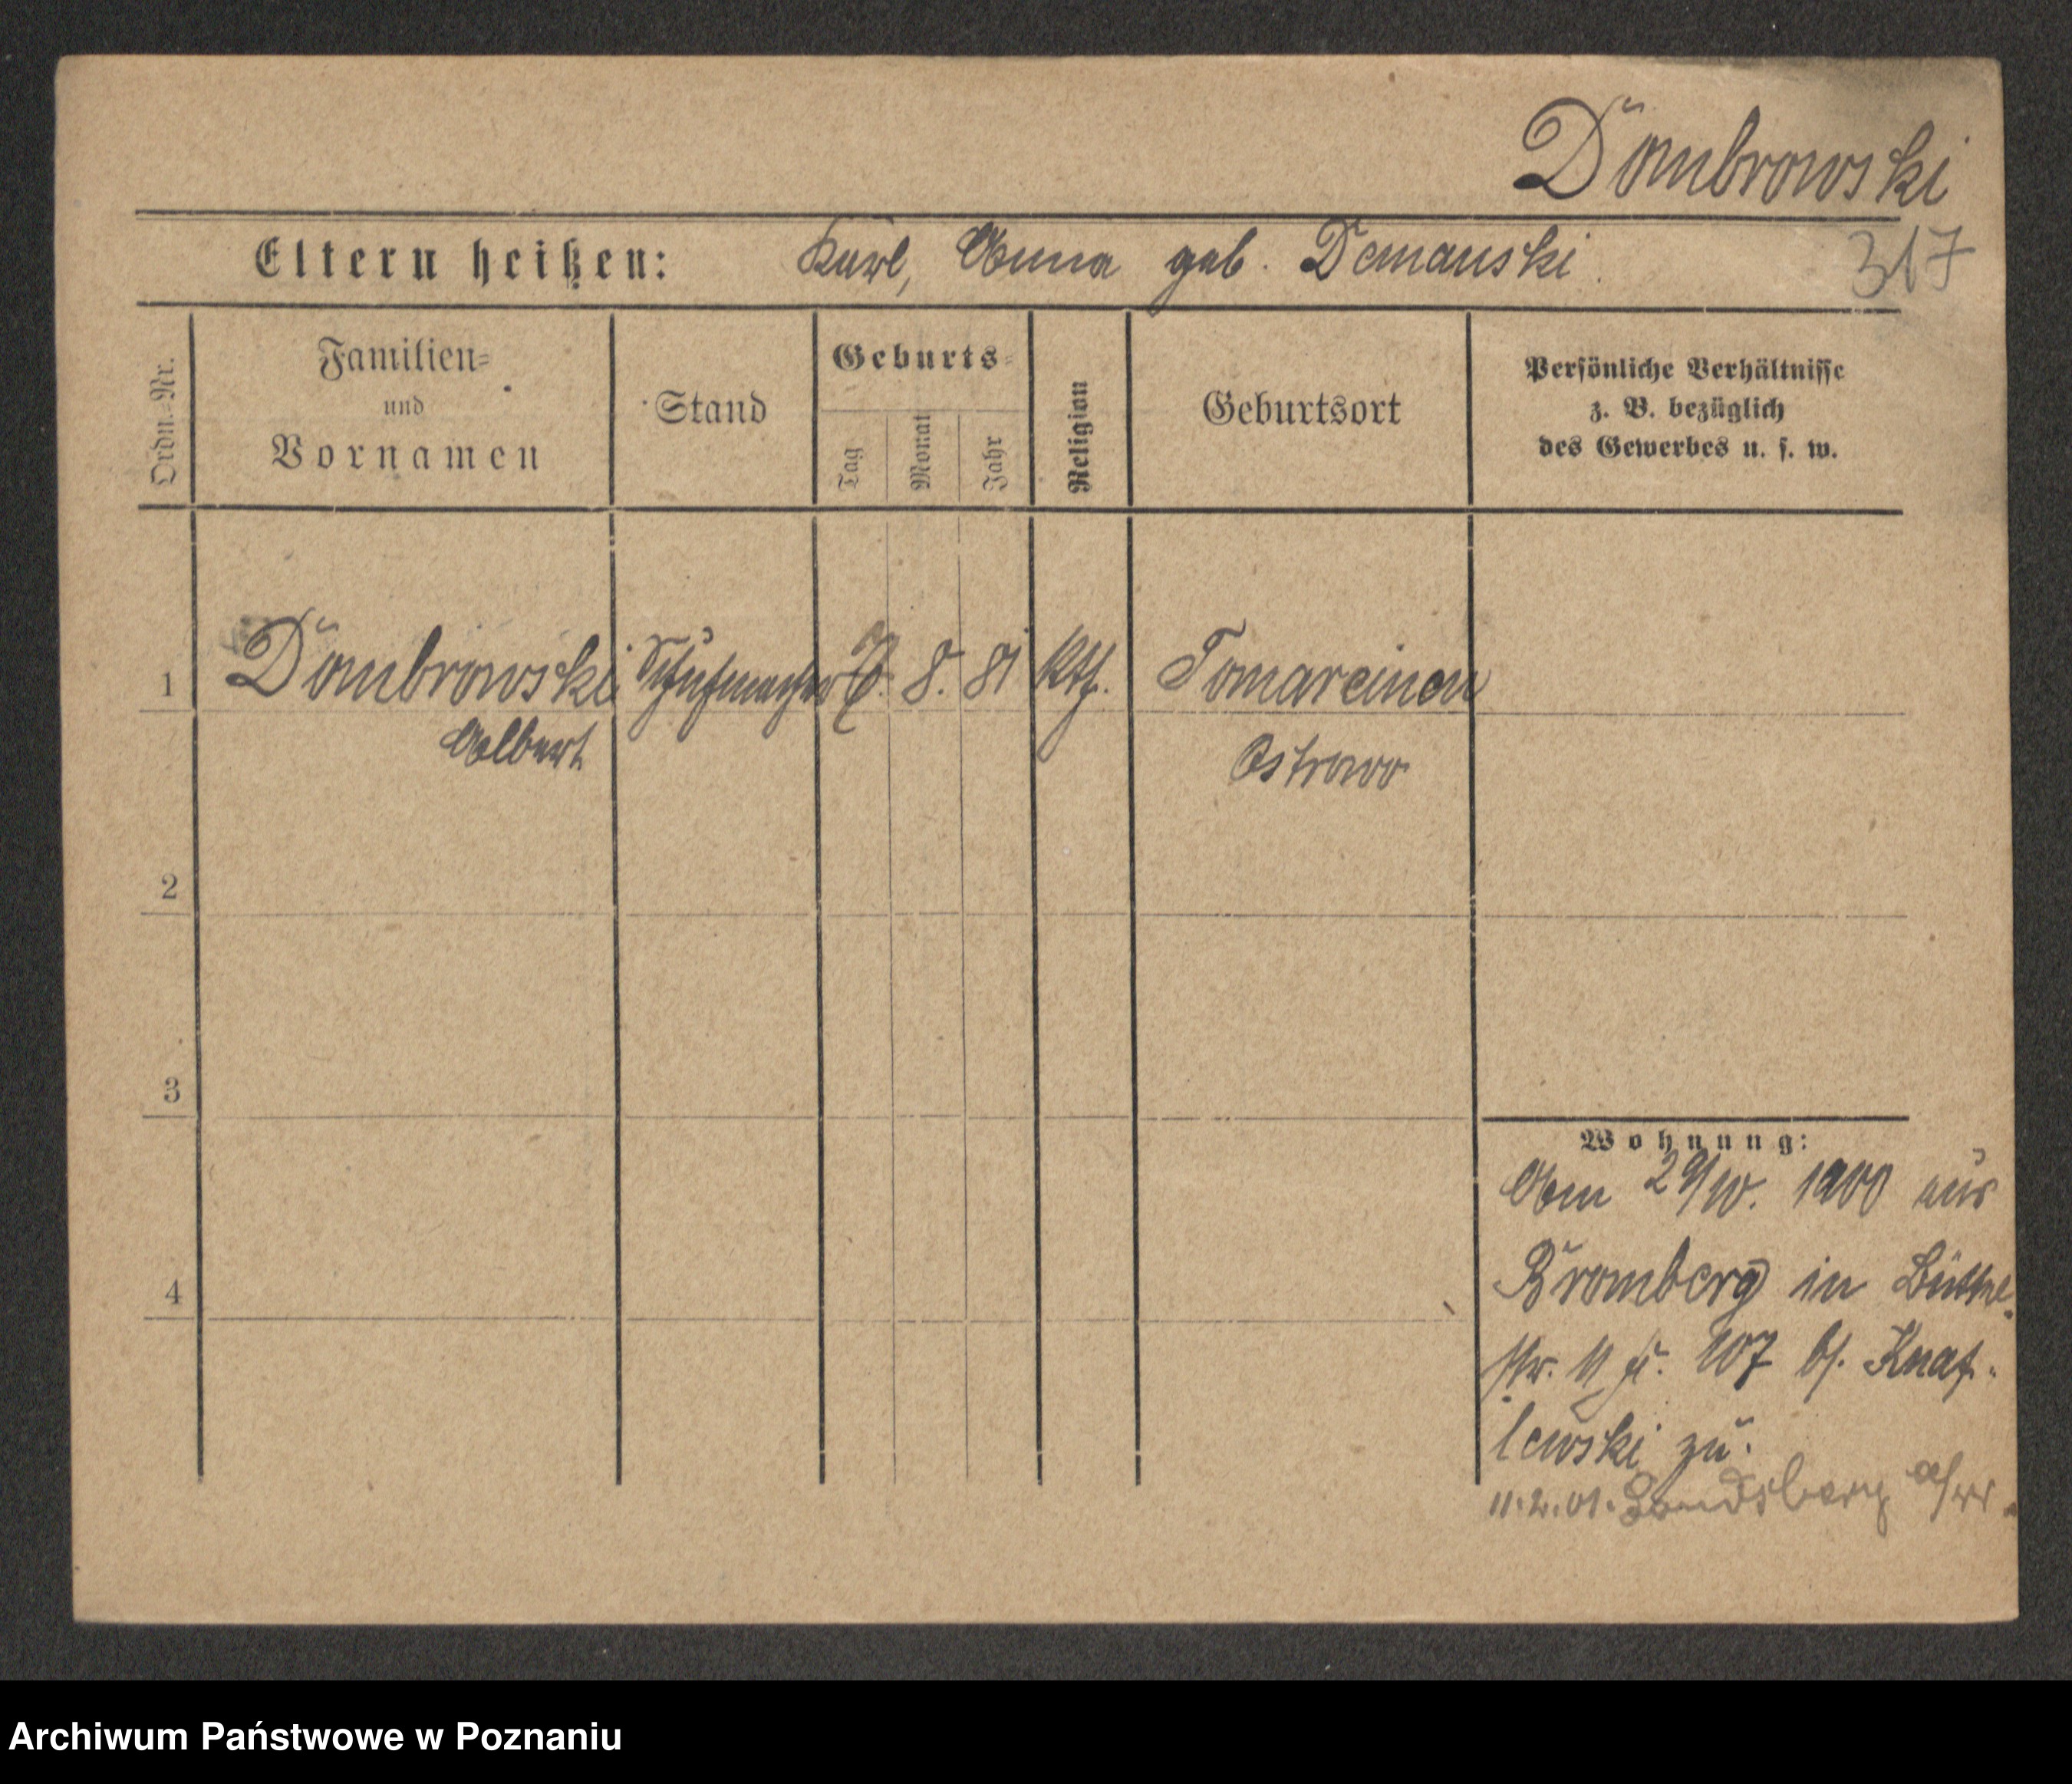 Dombrowski
Eltern heißen: Karl, Anna geb. Demanski.
317
Ordn.-Nr.
Familien-
und
Vornamen
Stand
Geburts-
Tag
Monat
Jahr
Religion
Geburtsort
Persönliche Verhältnisse
z. B. bezüglich
des Gewerbes u. s. w.
1 Dombrowski Schuhmacher 8. 81 kth.
Albert
Ostrowo
2
3
4
Wohnung:
Am 29/10. 1900 aus
Bromberg in
str. 11 107 b/.
lewski zu.
11.2.01. Landsberg a/W.
Archiwum Państwowe w Poznaniu